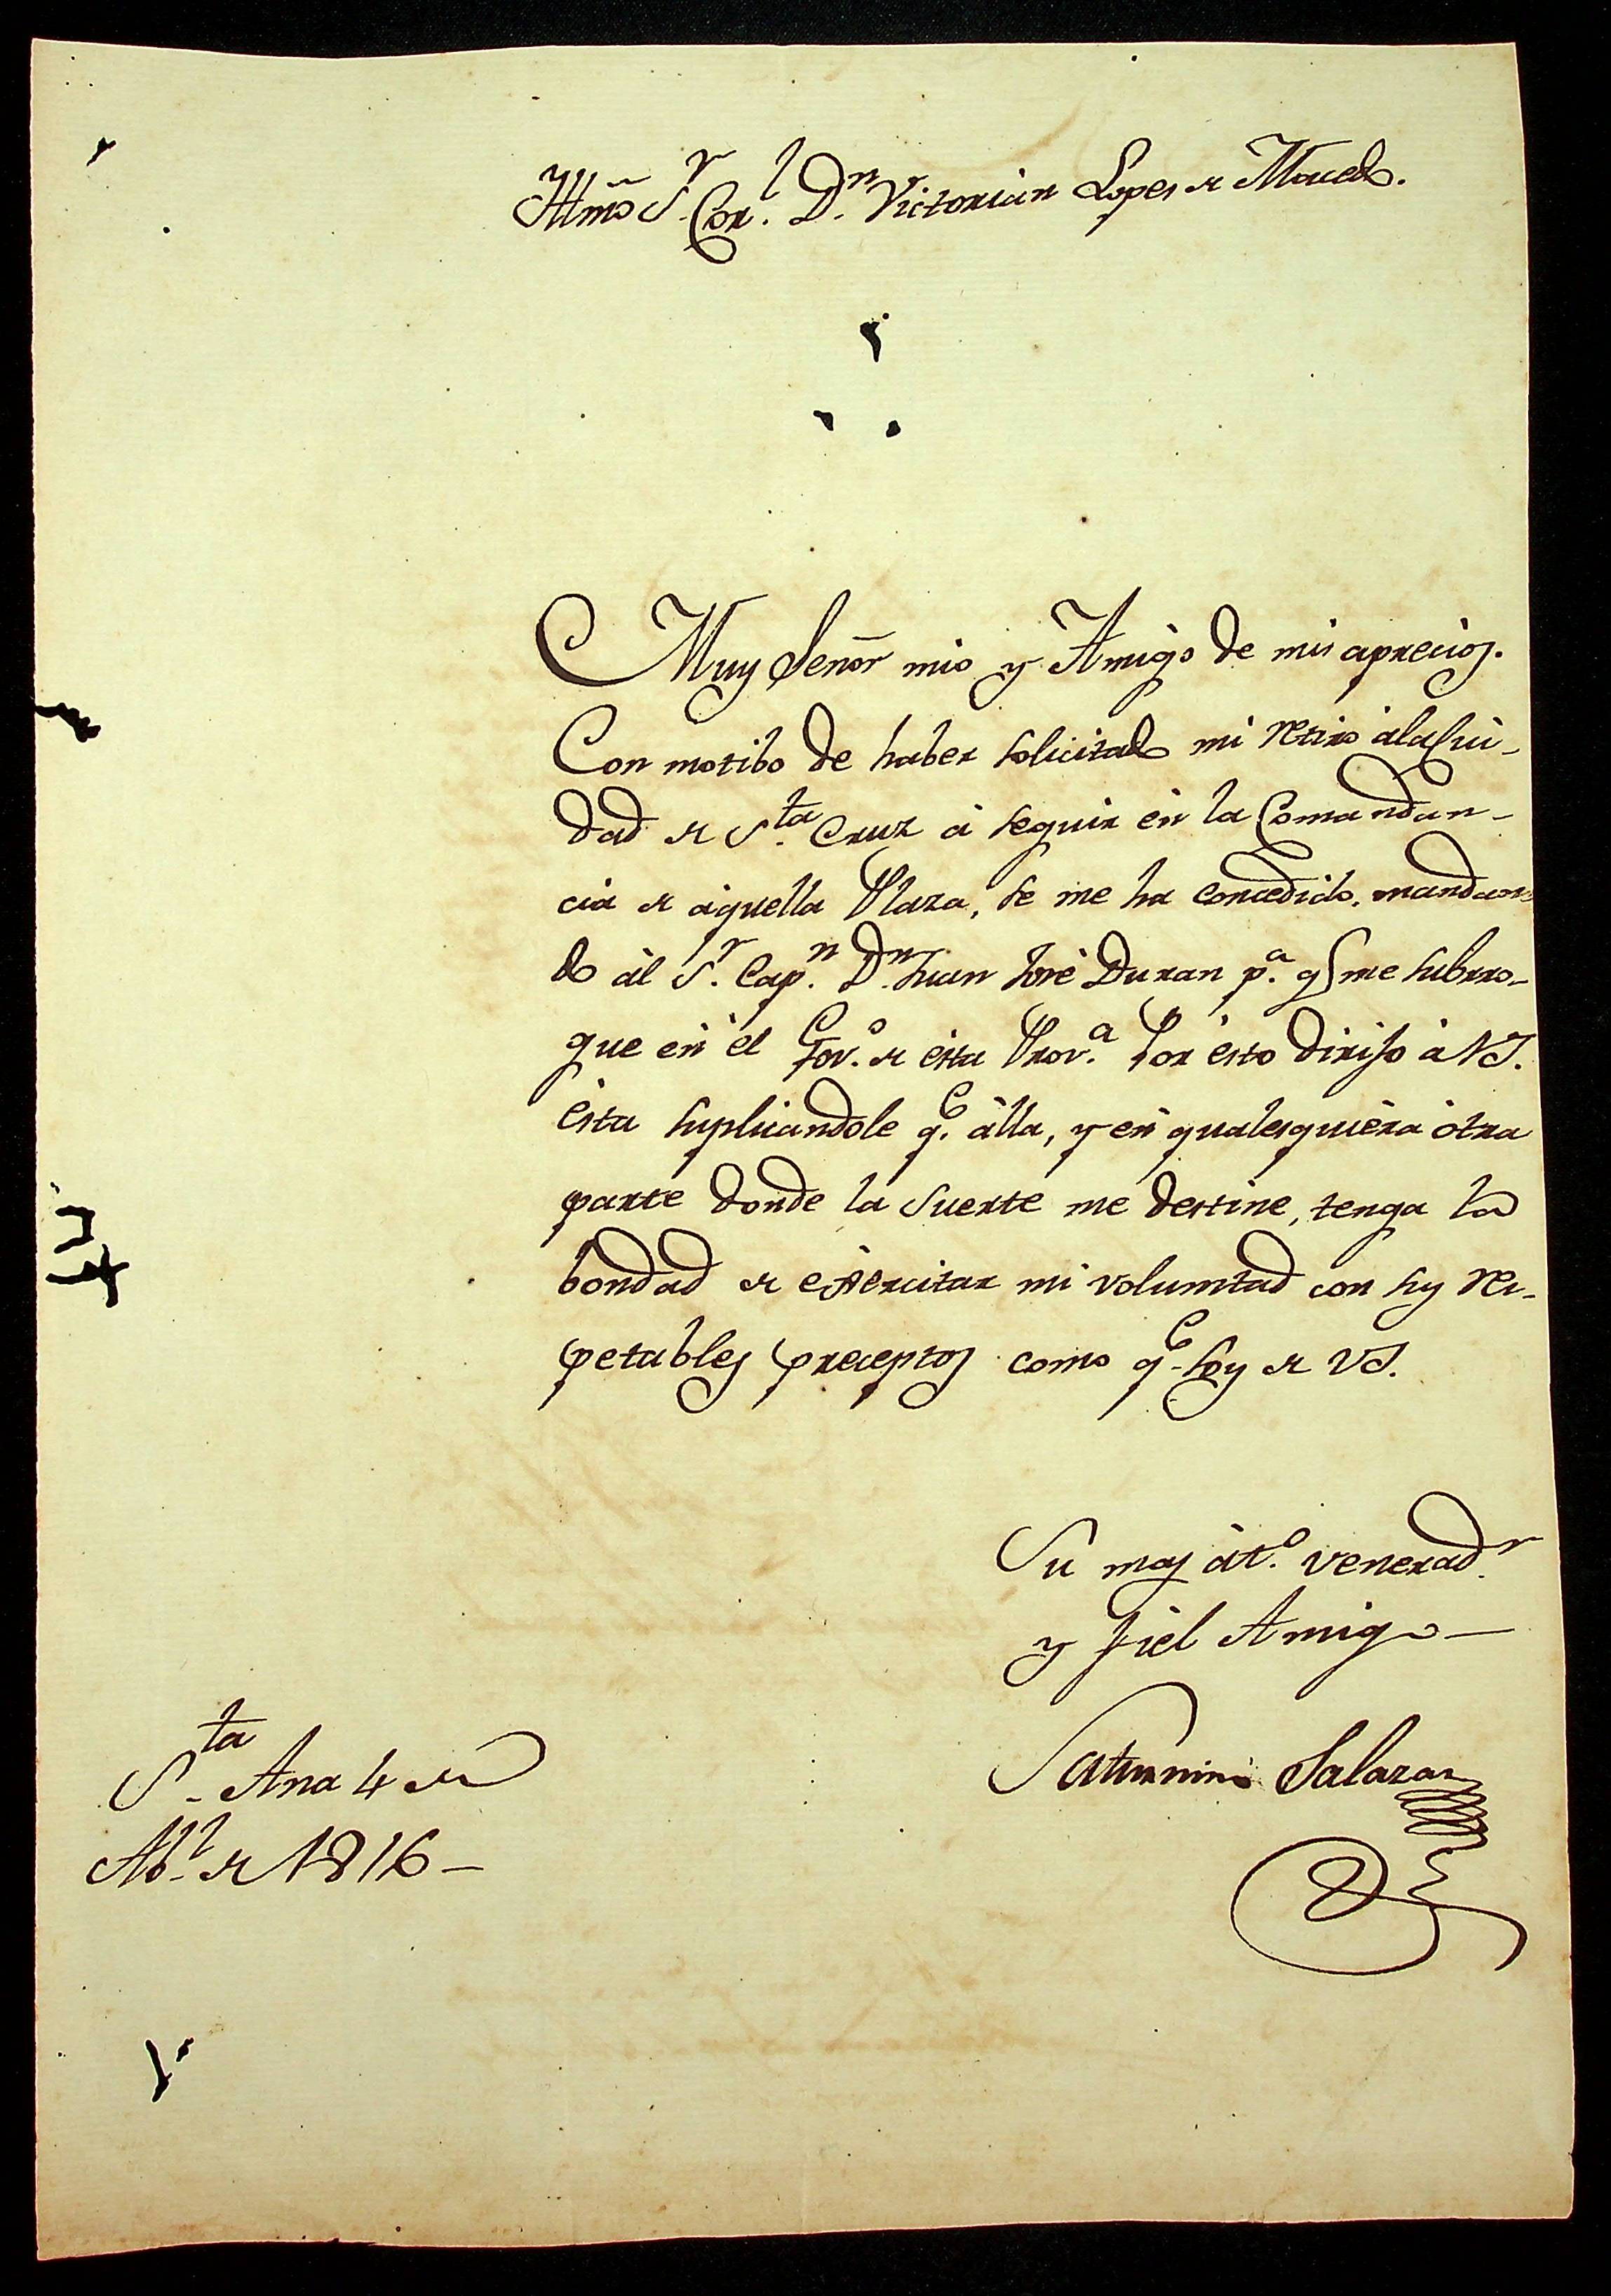 Illmõ S.r Cor.l D.n Victorian Lopes de Macedo.
Muy Señor mio y Amigo de mis aprecios.
Con motibo de haber solicitado mi retiro àla Ciu-
dad de S.ta Cruz à seguir èn la Comandan-
cia de àquella Plaza, se me ha concedido, mandan-
do àl S.r Cap.n D.n Juan José Duran p.a q me subrro-
gue èn èl Gov.o de èsta Prov.a Por èsto dirijo à VS.
èsta suplicandole q.e àlla, y èn qualesquièra òtra
parte donde la suerte me destine, tenga la
bondad de exercitar mi voluntad con sus res-
petables preceptos como q.e soy de VS.
Su mas àt.o venerad.r
y fiel Amigo
Saturnino Salazar
S.ta Ana 4 de
Ab.l de 1816